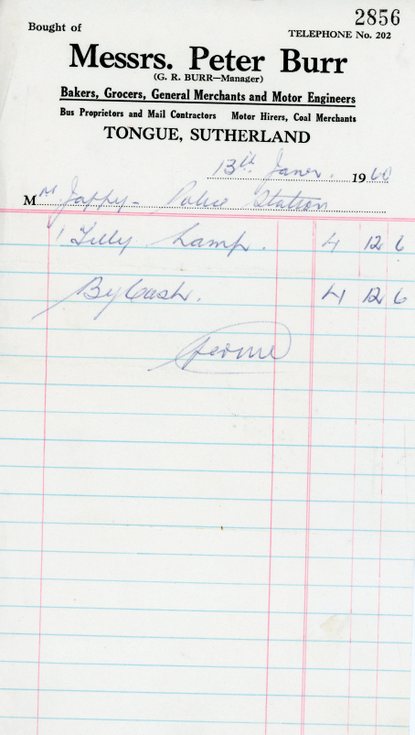 2856
Bought of
TELEPHONE No. 202
Messrs. Peter Burr
(G. R. BURR—Manager)
Bakers, Grocers, General Merchants and Motor Engineers
Bus Proprietors and Mail Contractors Motor Hirers, Coal Merchants
TONGUE, SUTHERLAND
13th Janer. 1960
Mr Jappy - Police Station
1 Tilly Lamp. 4 12 6
By Cash. 4 12 6